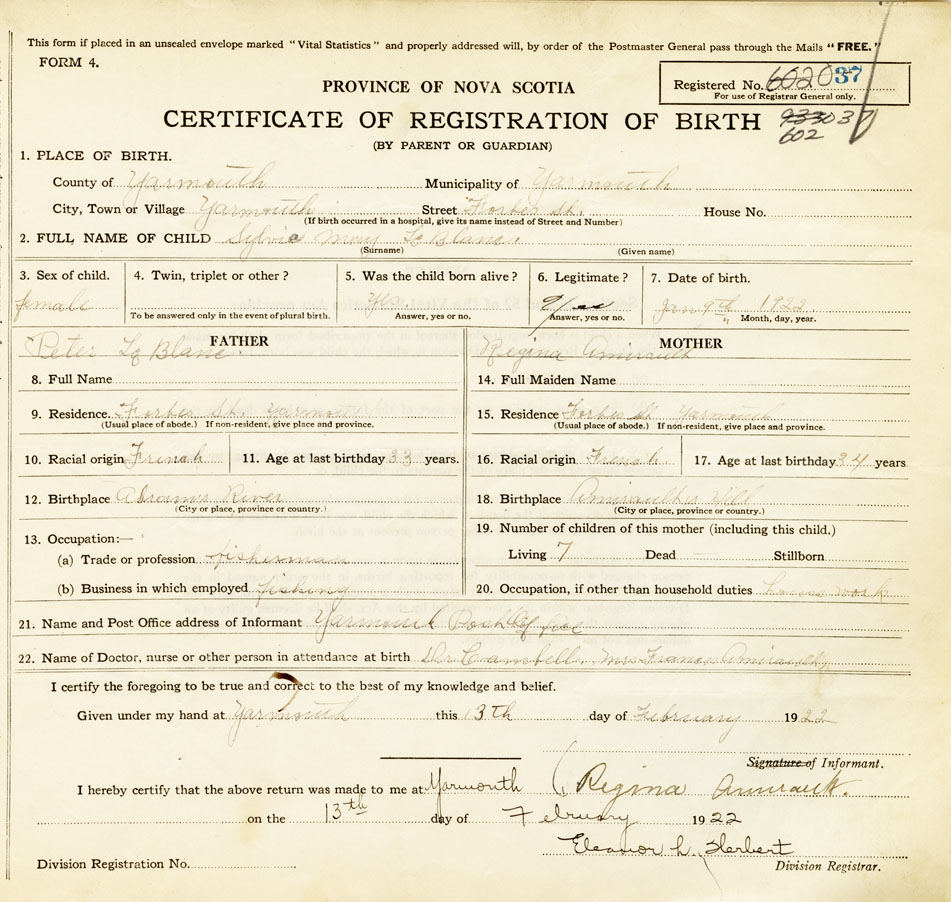 This form if placed in an unsealed envelope marked "Vital Statistics" and properly addressed will, by order of the Postmaster General pass through the Mails "FREE."
FORM 4.
Registered No. 602037
For use of Registrar General only.
PROVINCE OF NOVA SCOTIA
CERTIFICATE OF REGISTRATION OF BIRTH
602
(BY PARENT OR GUARDIAN)
1. PLACE OF BIRTH.
County of Yarmouth Municipality of Yarmouth
City, Town or Village Yarmouth Street Forbes St. House No.
(If birth occurred in a hospital, give its name instead of Street and Number)
2. FULL NAME OF CHILD Sylvie May Le Blanc.
(Surname) (Given name)
3. Sex of child. 4. Twin, triplet or other? 5. Was the child born alive? 6. Legitimate? 7. Date of birth.
female Yes. Jan 9th 1922
To be answered only in the event of plural birth. Answer, yes or no. Answer, yes or no. Month, day, year.
FATHER MOTHER
Peter Le Blanc. Regina Amirault
8. Full Name 14. Full Maiden Name
9. Residence. Forbes St. Yarmouth 15. Residence Forbes St Yarmouth
(Usual place of abode.) If non-resident, give place and province. (Usual place of abode.) If non-resident, give place and province.
10. Racial origin Frinah 11. Age at last birthday 33 years. 16. Racial origin French. 17. Age at last birthday 34 years
12. Birthplace River 18. Birthplace Amirault's Hill
(City or place, province or country.) (City or place, province or country.)
13. Occupation:— 19. Number of children of this mother (including this child.)
(a) Trade or profession fisherman Living 7 Dead Stillborn
(b) Business in which employed fishing 20. Occupation, if other than household duties house work
21. Name and Post Office address of Informant Yarmouth Post
22. Name of Doctor, nurse or other person in attendance at birth Dr Cambell. Mrs Francis Amirault,
I certify the foregoing to be true and correct to the best of my knowledge and belief.
Given under my hand at Yarmouth this 13th day of February 1922
Signature of Informant.
I hereby certify that the above return was made to me at Yarmouth (Regina Amirault.
on the 13th day of February 1922
Eleanor L. Herbert
Division Registration No. Division Registrar.